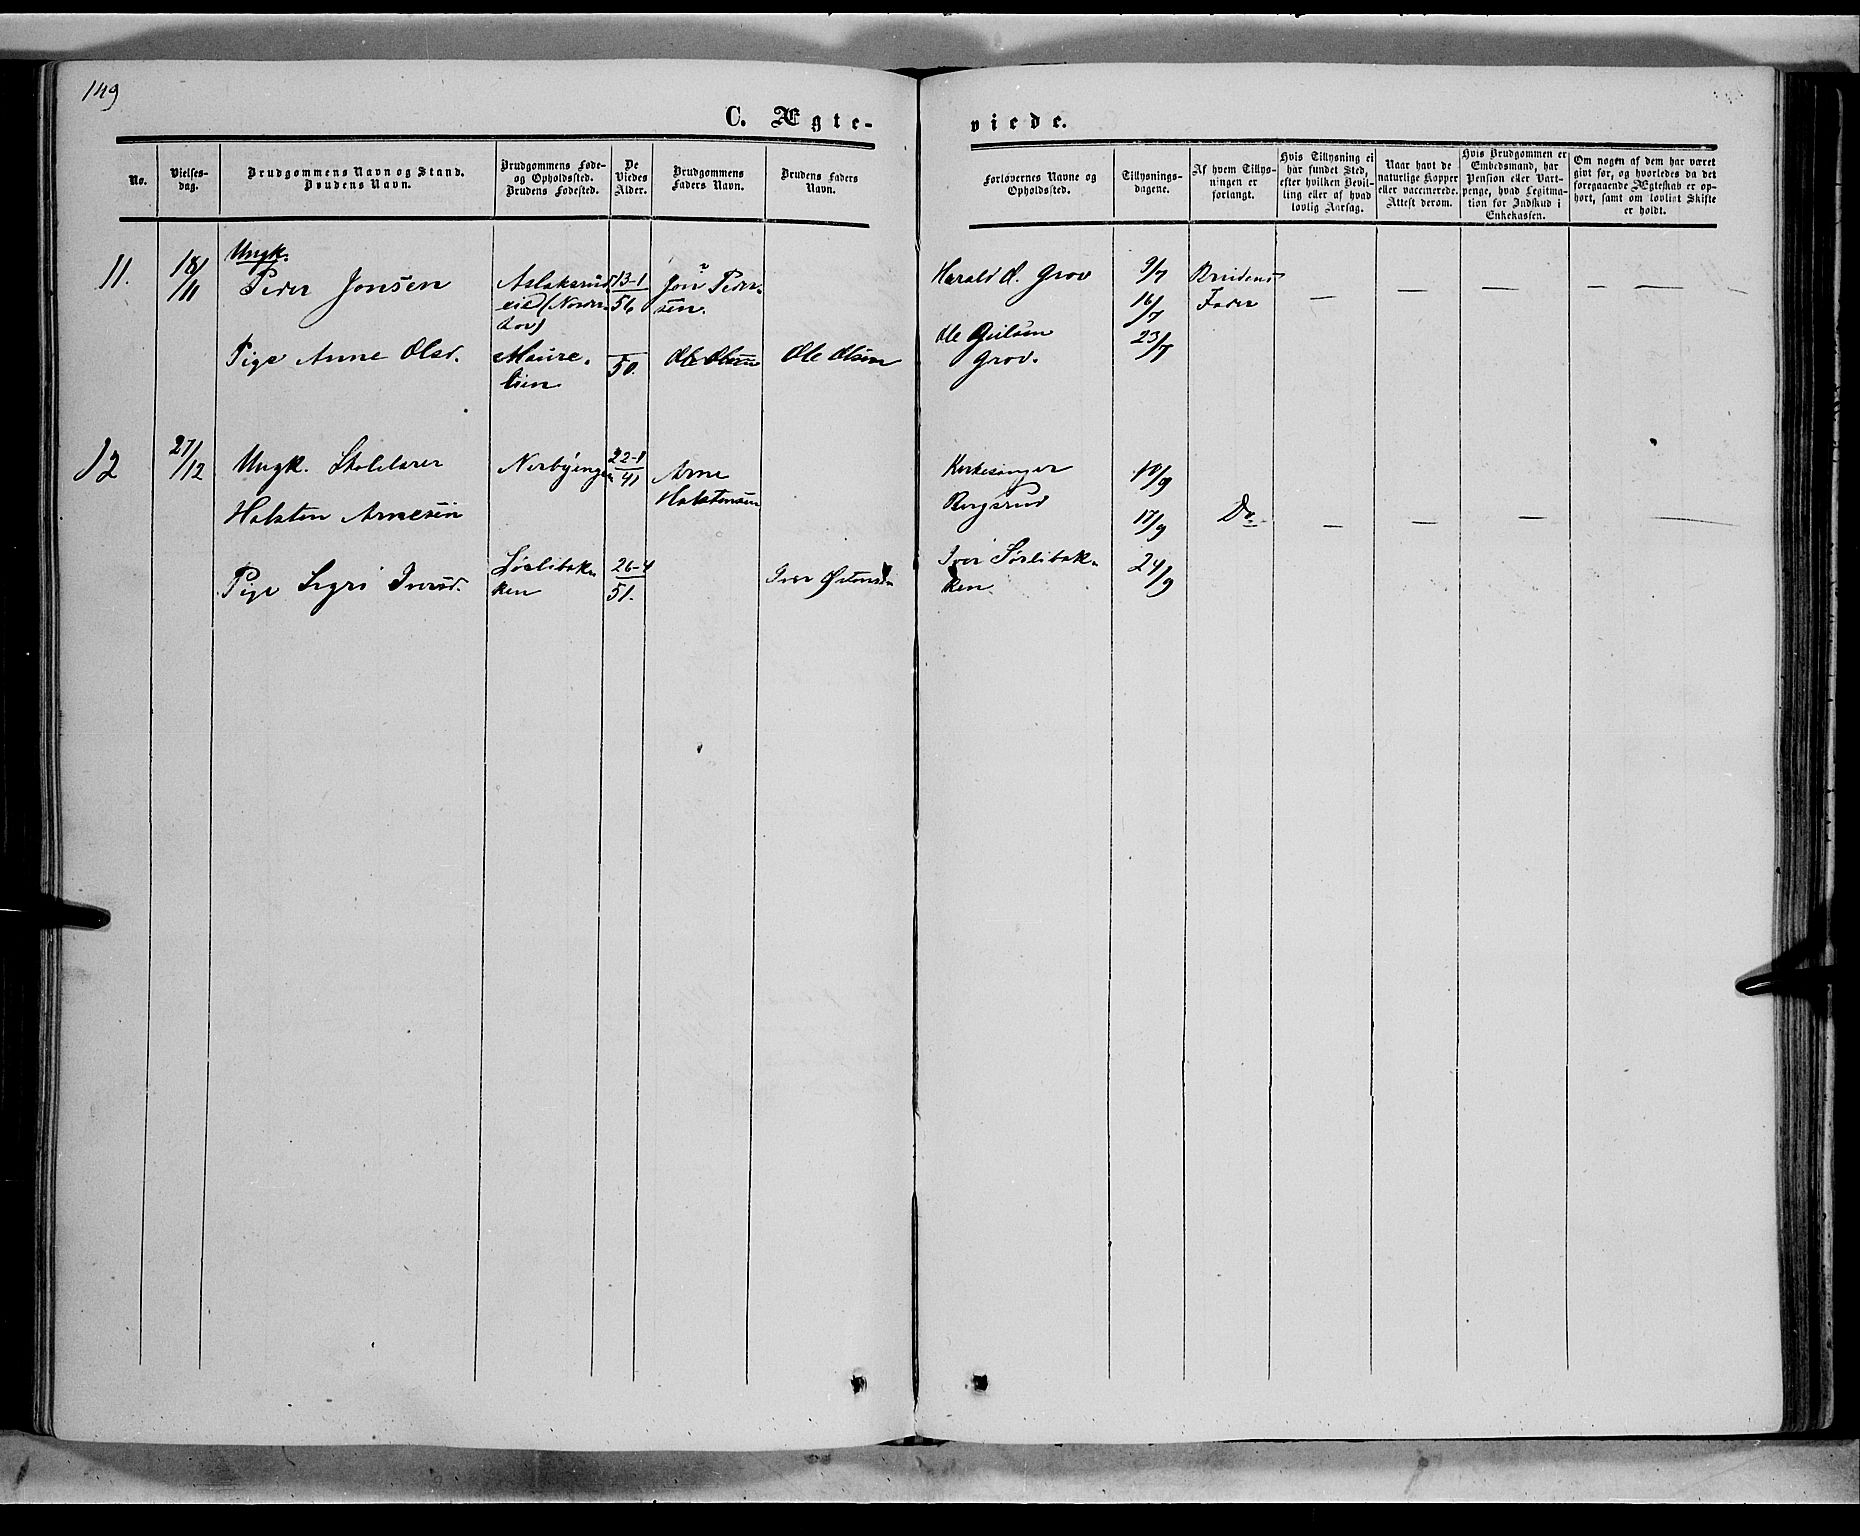 149
C. Ægte-
viede.
No.
Vielses-
dag.
Brudgommens Navn og Stand.
Brudens Navn.
Brudgommens Føde-
og Opholdssted.
Brudens Fødested.
De
Viedes
Alder.
Brudgommens
Faders Navn.
Brudens Faders
Navn.
Forlovernes Navne og
Opholdssted.
Tillysnings-
dagene.
Af hvem Tillys-
ningen er
forlangt.
Hvis Tillysning ei
har fundet Sted,
efter hvilken Bevil-
ling eller af hvad
lovlig Aarsag.
Naar havt de
naturlige Kopper
eller vaccinerede.
Attest derom.
Hvis Brudgommen er
Embedsmand, har
Pension eller Vart-
penge, hvad Legitima-
tion for Indskud i
Enkekassen.
Om nogen af dem har været
givt før, og hvorledes da det
foregaaende Ægteskab er op-
hørt, samt om lovligt Skifte
er holdt.
11.
18/11
Ungk.
Peder Jonsen
Aslaksrud
eie (Nordre
Land)
13-1
56
Jon Peder-
sen.
Harald O. Grov
9/7
Brudens
16/7
Fader
— — — — —
Pige Anne Olsd.
50.
Ole Olsen
Ole Olsen
Ole
Grov.
23/7
12
27/12
Ungk. Skolelærer
Nerbyengen
22-1
41
Arne
Holstensen
Kirkesanger
Bergsrud
10/9
Holsten Arnesen
17/9
Do
— — — —
Pige Sigri Iversd.
Sørlibak-
ken
26-4
51.
Iver Østensen
Iver Sørlibak-
ken.
24/9